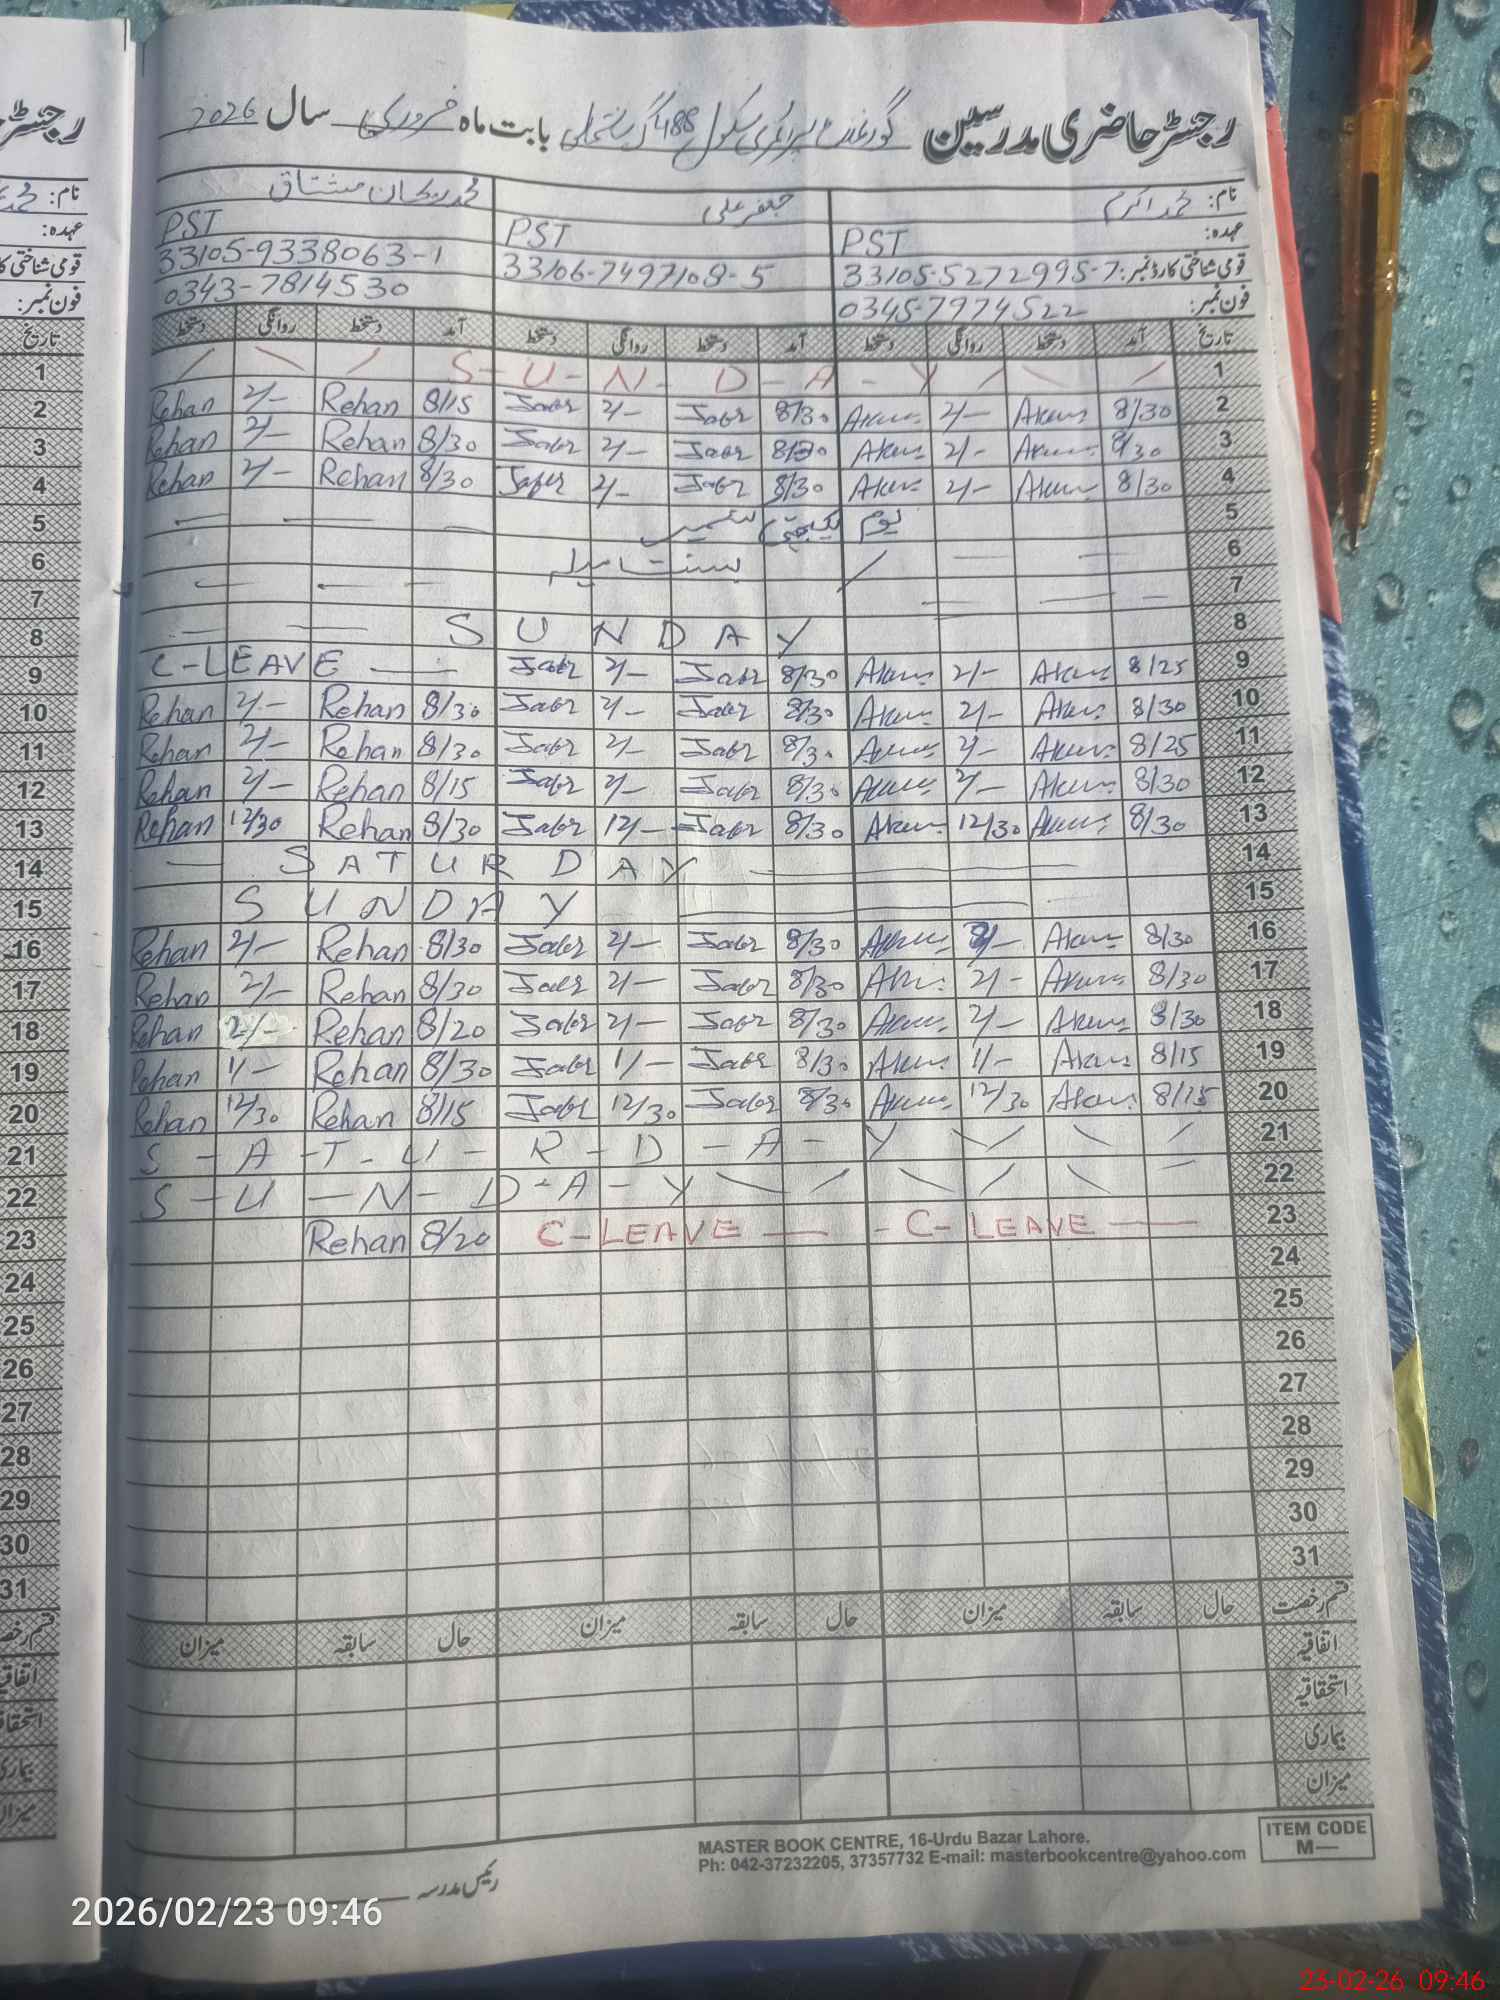 رجسٹر حاضری مدرسین گورنمنٹ پرائمری سکول 488 گ ب بابت ماہ فروری سال 2026
نام: محمد اکرم جعفر علی محمد ریحان مشتاق
عہدہ: PST PST PST
قومی شناختی کارڈ نمبر: 33105-5272995-7 33106-7497108-5 33105-9338063-1
فون نمبر: 0345-7974522 0343-7814530
تاریخ آمد دستخط روانگی دستخط آمد دستخط روانگی دستخط آمد دستخط روانگی دستخط
S-U-N-D-A-Y 1
Rehan 2/- Rehan 8/15 Jafr 2/- Jafr 8/30 Akram 2/- Akram 8/30 2
Rehan 2/- Rehan 8/30 Jafr 2/- Jafr 8/30 Akram 2/- Akram 8/30 3
Rehan 2/- Rehan 8/30 Jafer 2/- Jafr 8/30 Akram 2/- Akram 8/30 4
یوم یکجہتی کشمیر 5
بسنت میلہ 6
7
SUNDAY 8
C-LEAVE Jafr 2/- Jafr 8/30 Akram 2/- Akram 8/25 9
Rehan 2/- Rehan 8/30 Jafr 2/- Jafr 8/30 Akram 2/- Akram 8/30 10
Rehan 2/- Rehan 8/30 Jafr 2/- Jafr 8/30 Akram 2/- Akram 8/25 11
Rehan 2/- Rehan 8/15 Jafr 2/- Jafr 8/30 Akram 2/- Akram 8/30 12
Rehan 12/30 Rehan 8/30 Jafr 12/- Jafr 8/30 Akram 12/30 Akram 8/30 13
SATURDAY 14
SUNDAY 15
Rehan 2/- Rehan 8/30 Jafr 2/- Jafr 8/30 Akram 2/- Akram 8/30 16
Rehan 2/- Rehan 8/30 Jafr 2/- Jafr 8/30 Akram 2/- Akram 8/30 17
Rehan 2/- Rehan 8/20 Jafr 2/- Jafr 8/30 Akram 2/- Akram 8/30 18
Rehan 1/- Rehan 8/30 Jafr 1/- Jafr 8/30 Akram 1/- Akram 8/15 19
Rehan 12/30 Rehan 8/15 Jafr 12/30 Jafr 8/30 Akram 12/30 Akram 8/15 20
S-A-T-U-R-D-A-Y 21
S-U-N-D-A-Y 22
Rehan 8/20 C-LEAVE C-LEAVE 23
24
25
26
27
28
29
30
31
قسم رخصت حال سابقہ میزان حال سابقہ میزان حال سابقہ میزان
اتفاقیہ
استحقاقیہ
بیماری
میزان
MASTER BOOK CENTRE, 16-Urdu Bazar Lahore.
Ph: 042-37232205, 37357732 E-mail: masterbookcentre@yahoo.com
ITEM CODE
M—
رئیس مدرسہ
رجسٹر
نام:
عہدہ:
قومی شناختی
فون نمبر:
تاریخ
1
2
3
4
5
6
7
8
9
10
11
12
13
14
15
16
17
18
19
20
21
22
23
24
25
26
27
28
29
30
31
2026/02/23 09:46
23-02-26 09:46